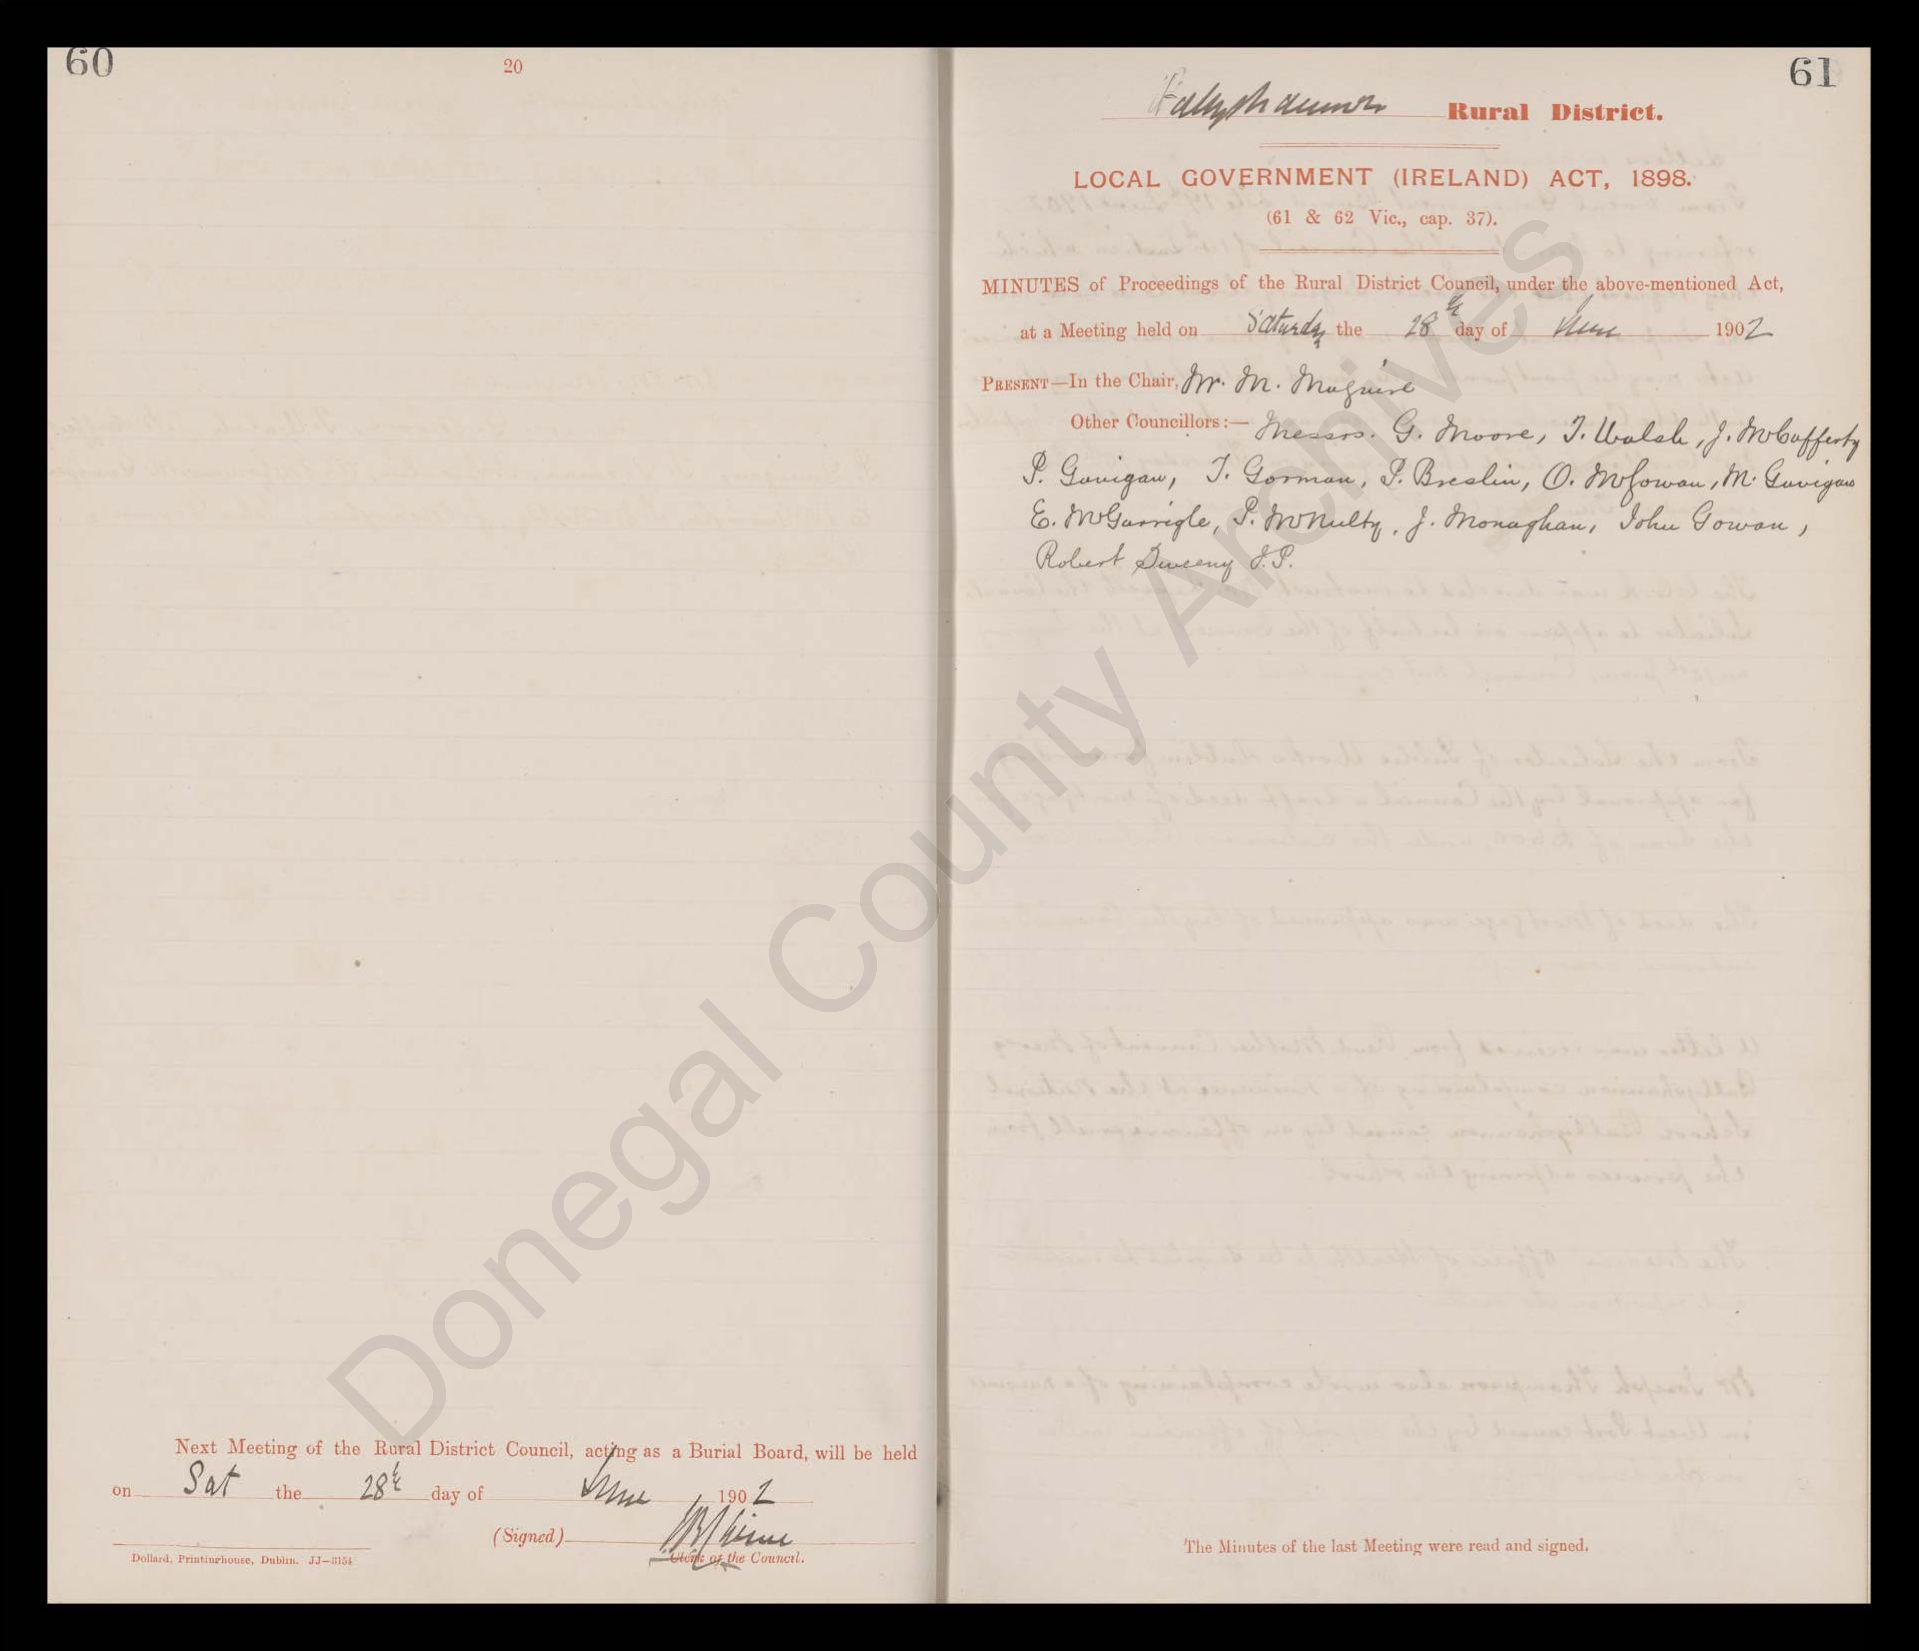 60
20
Next Meeting of the Rural District Council, acting as a Burial Board, will be held
on Sat the 28th day of June 1902
(Signed)
Clerk of the Council.
Dollard, Printinghouse, Dublin. JJ—8154
61
Ballyshannon Rural District.
LOCAL GOVERNMENT (IRELAND) ACT, 1898.
(61 & 62 Vic., cap. 37).
MINUTES of Proceedings of the Rural District Council, under the above-mentioned Act,
at a Meeting held on Saturday the 28th day of June 1902
PRESENT—In the Chair, Mr. M. Maguire
Other Councillors:— Messrs. G. Moore, T. Walsh, J. McCafferty
P. Gavigan, T. Gorman, P. Breslin, O. McGowan, M. Gavigan
E. McGarrigle, P. McNulty, J. Monaghan, John Gowan,
Robert Sweeny J.P.
The Minutes of the last Meeting were read and signed.
Donegal County Archives